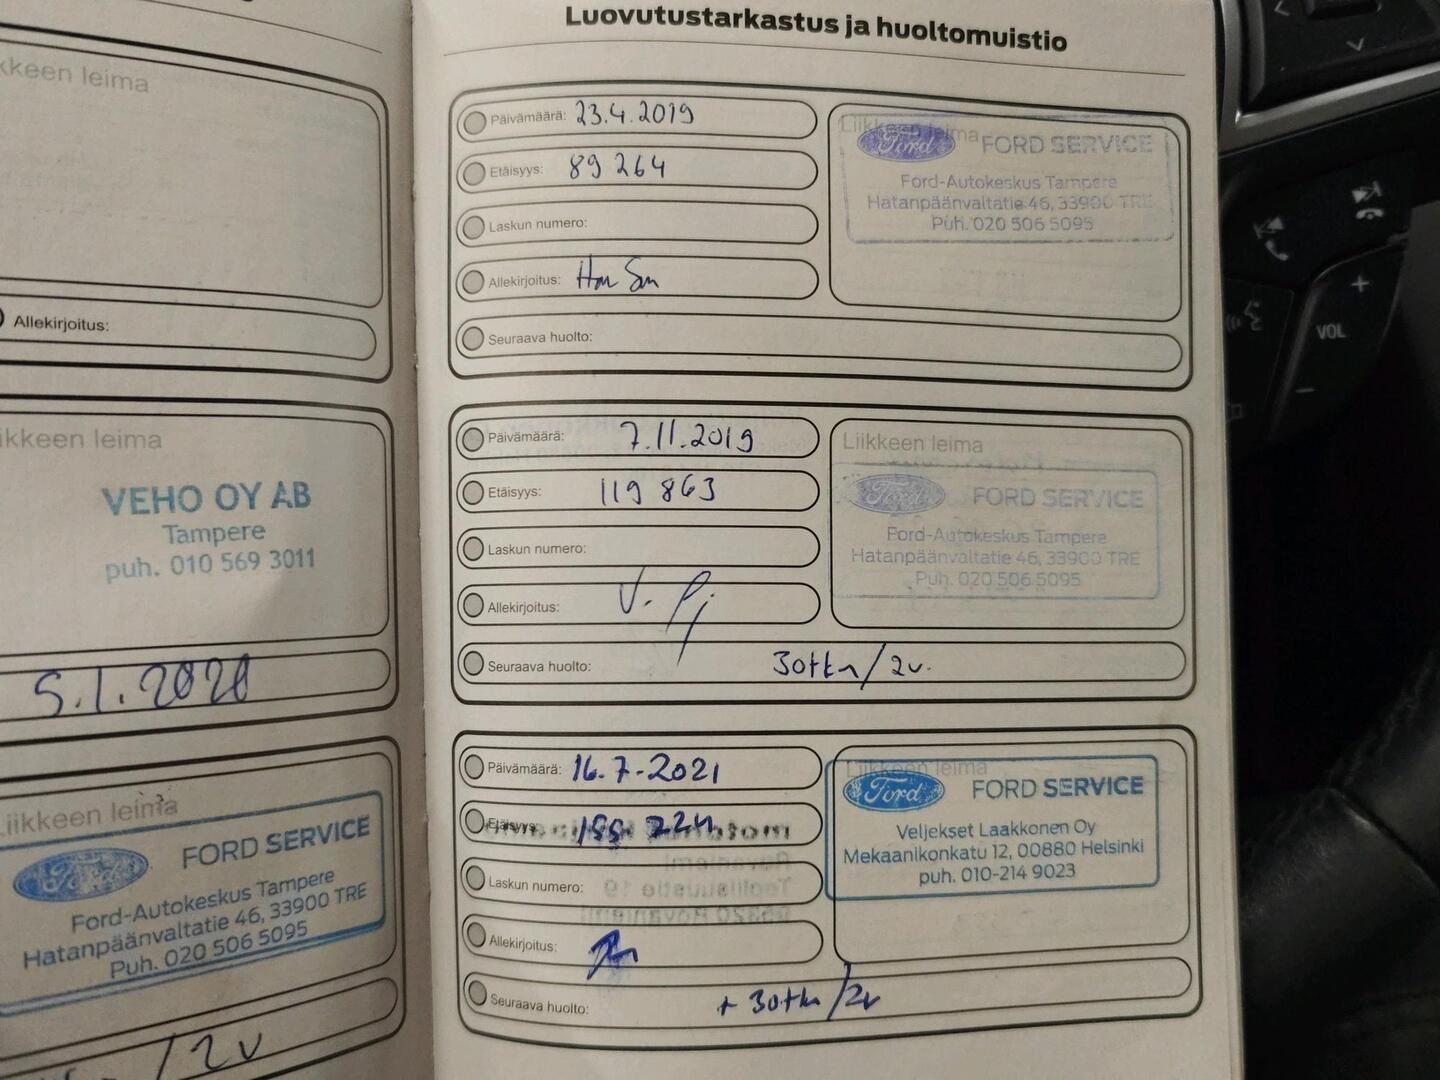 kkeen leima
Allekirjoitus:
ikkeen leima
VEHO OY AB
Tampere
puh. 010 569 3011
5.1.2020
Liikkeen leima
Ford
FORD SERVICE
Ford-Autokeskus Tampere
Hatanpäänvaltatie 46, 33900 TRE
Puh. 020 506 5095
/2v
Luovutustarkastus ja huoltomuistio
Päivämäärä: 23.4.2019
Etäisyys: 89 264
Laskun numero:
Allekirjoitus:
Seuraava huolto:
Liikkeen leima
Ford
FORD SERVICE
Ford-Autokeskus Tampere
Hatanpäänvaltatie 46, 33900 TRE
Puh. 020 506 5095
Päivämäärä: 7.11.2019
Etäisyys: 119 863
Laskun numero:
Allekirjoitus: V. 
Seuraava huolto: 30tkm/2v.
Liikkeen leima
Ford
FORD SERVICE
Ford-Autokeskus Tampere
Hatanpäänvaltatie 46, 33900 TRE
Puh. 020 506 5095
Päivämäärä: 16.7-2021
Etäisyys:
Laskun numero:
Allekirjoitus:
Seuraava huolto: + 30tkm/2v
Liikkeen leima
Ford
FORD SERVICE
Veljekset Laakkonen Oy
Mekaanikonkatu 12, 00880 Helsinki
puh. 010-214 9023
+
VOL
−